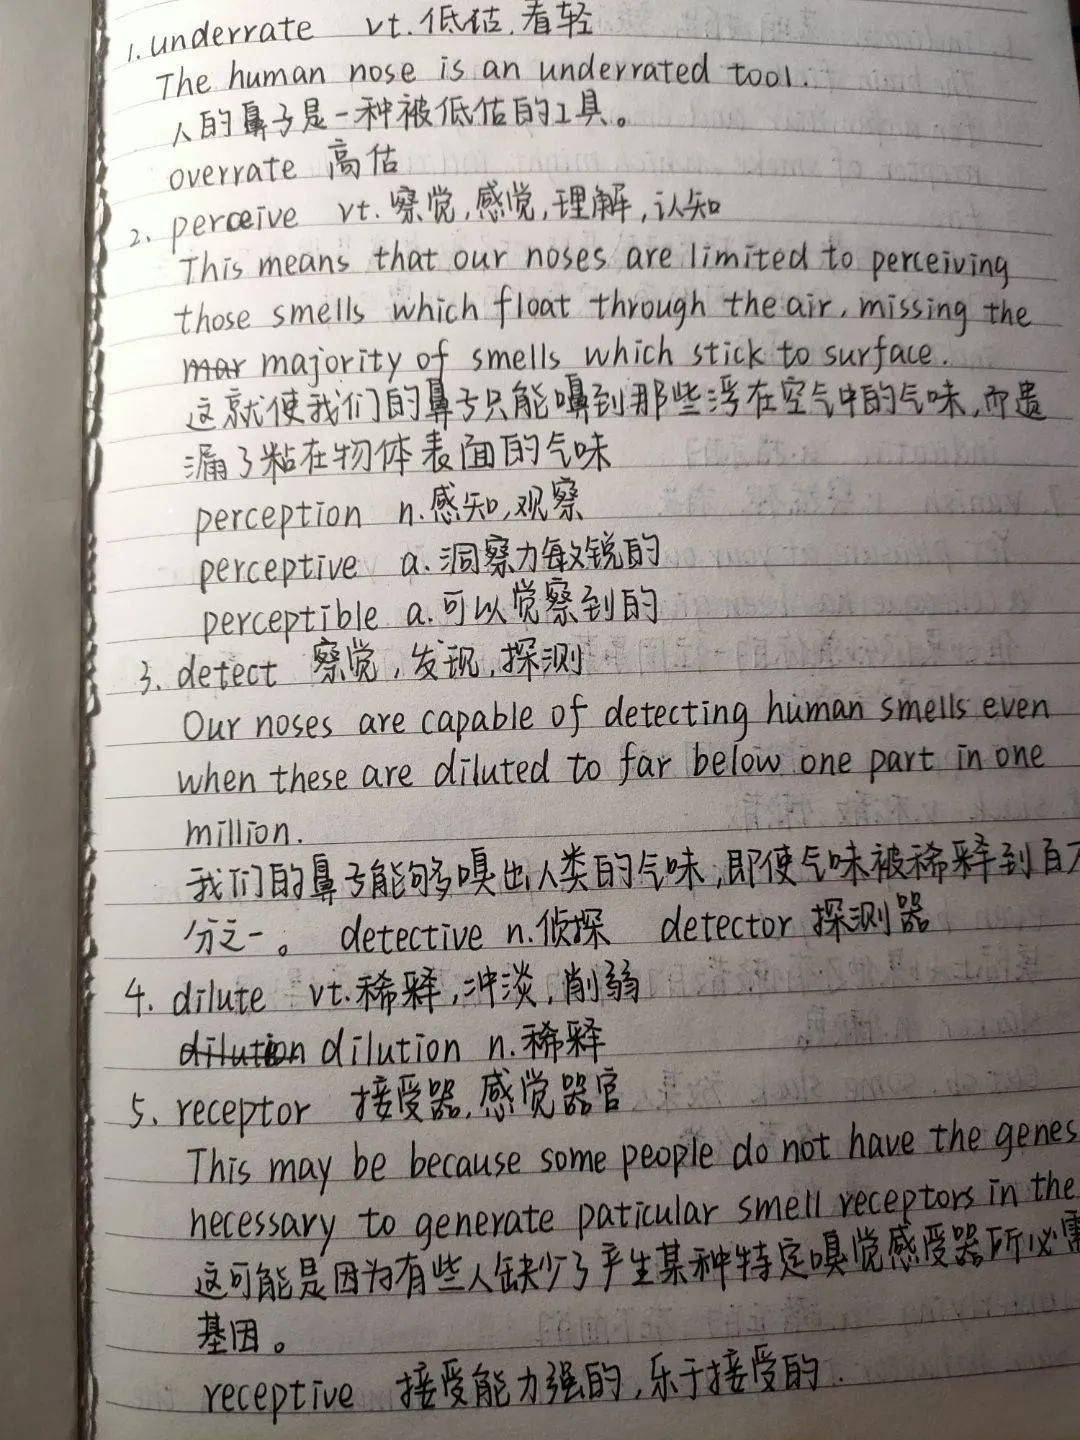 1. underrate vt. 低估, 看轻
The human nose is an underrated tool.
人的鼻子是一种被低估的工具。
overrate 高估
2. perceive vt. 察觉, 感觉, 理解, 认知
This means that our noses are limited to perceiving
those smells which float through the air, missing the
mar majority of smells which stick to surface.
这就使我们的鼻子只能嗅到那些浮在空气中的气味, 而遗
漏了粘在物体表面的气味
perception n. 感知, 观察
perceptive a. 洞察力敏锐的
perceptible a. 可以觉察到的
3. detect 察觉, 发现, 探测
Our noses are capable of detecting human smells even
when these are diluted to far below one part in one
million.
我们的鼻子能够嗅出人类的气味, 即使气味被稀释到百万
分之一。 detective n. 侦探 detector 探测器
4. dilute vt. 稀释, 冲淡, 削弱
dilution dilution n. 稀释
5. receptor 接受器, 感觉器官
This may be because some people do not have the genes
necessary to generate paticular smell receptors in the
这可能是因为有些人缺少了产生某种特定嗅觉感受器所必需
基因。
receptive 接受能力强的, 乐于接受的.